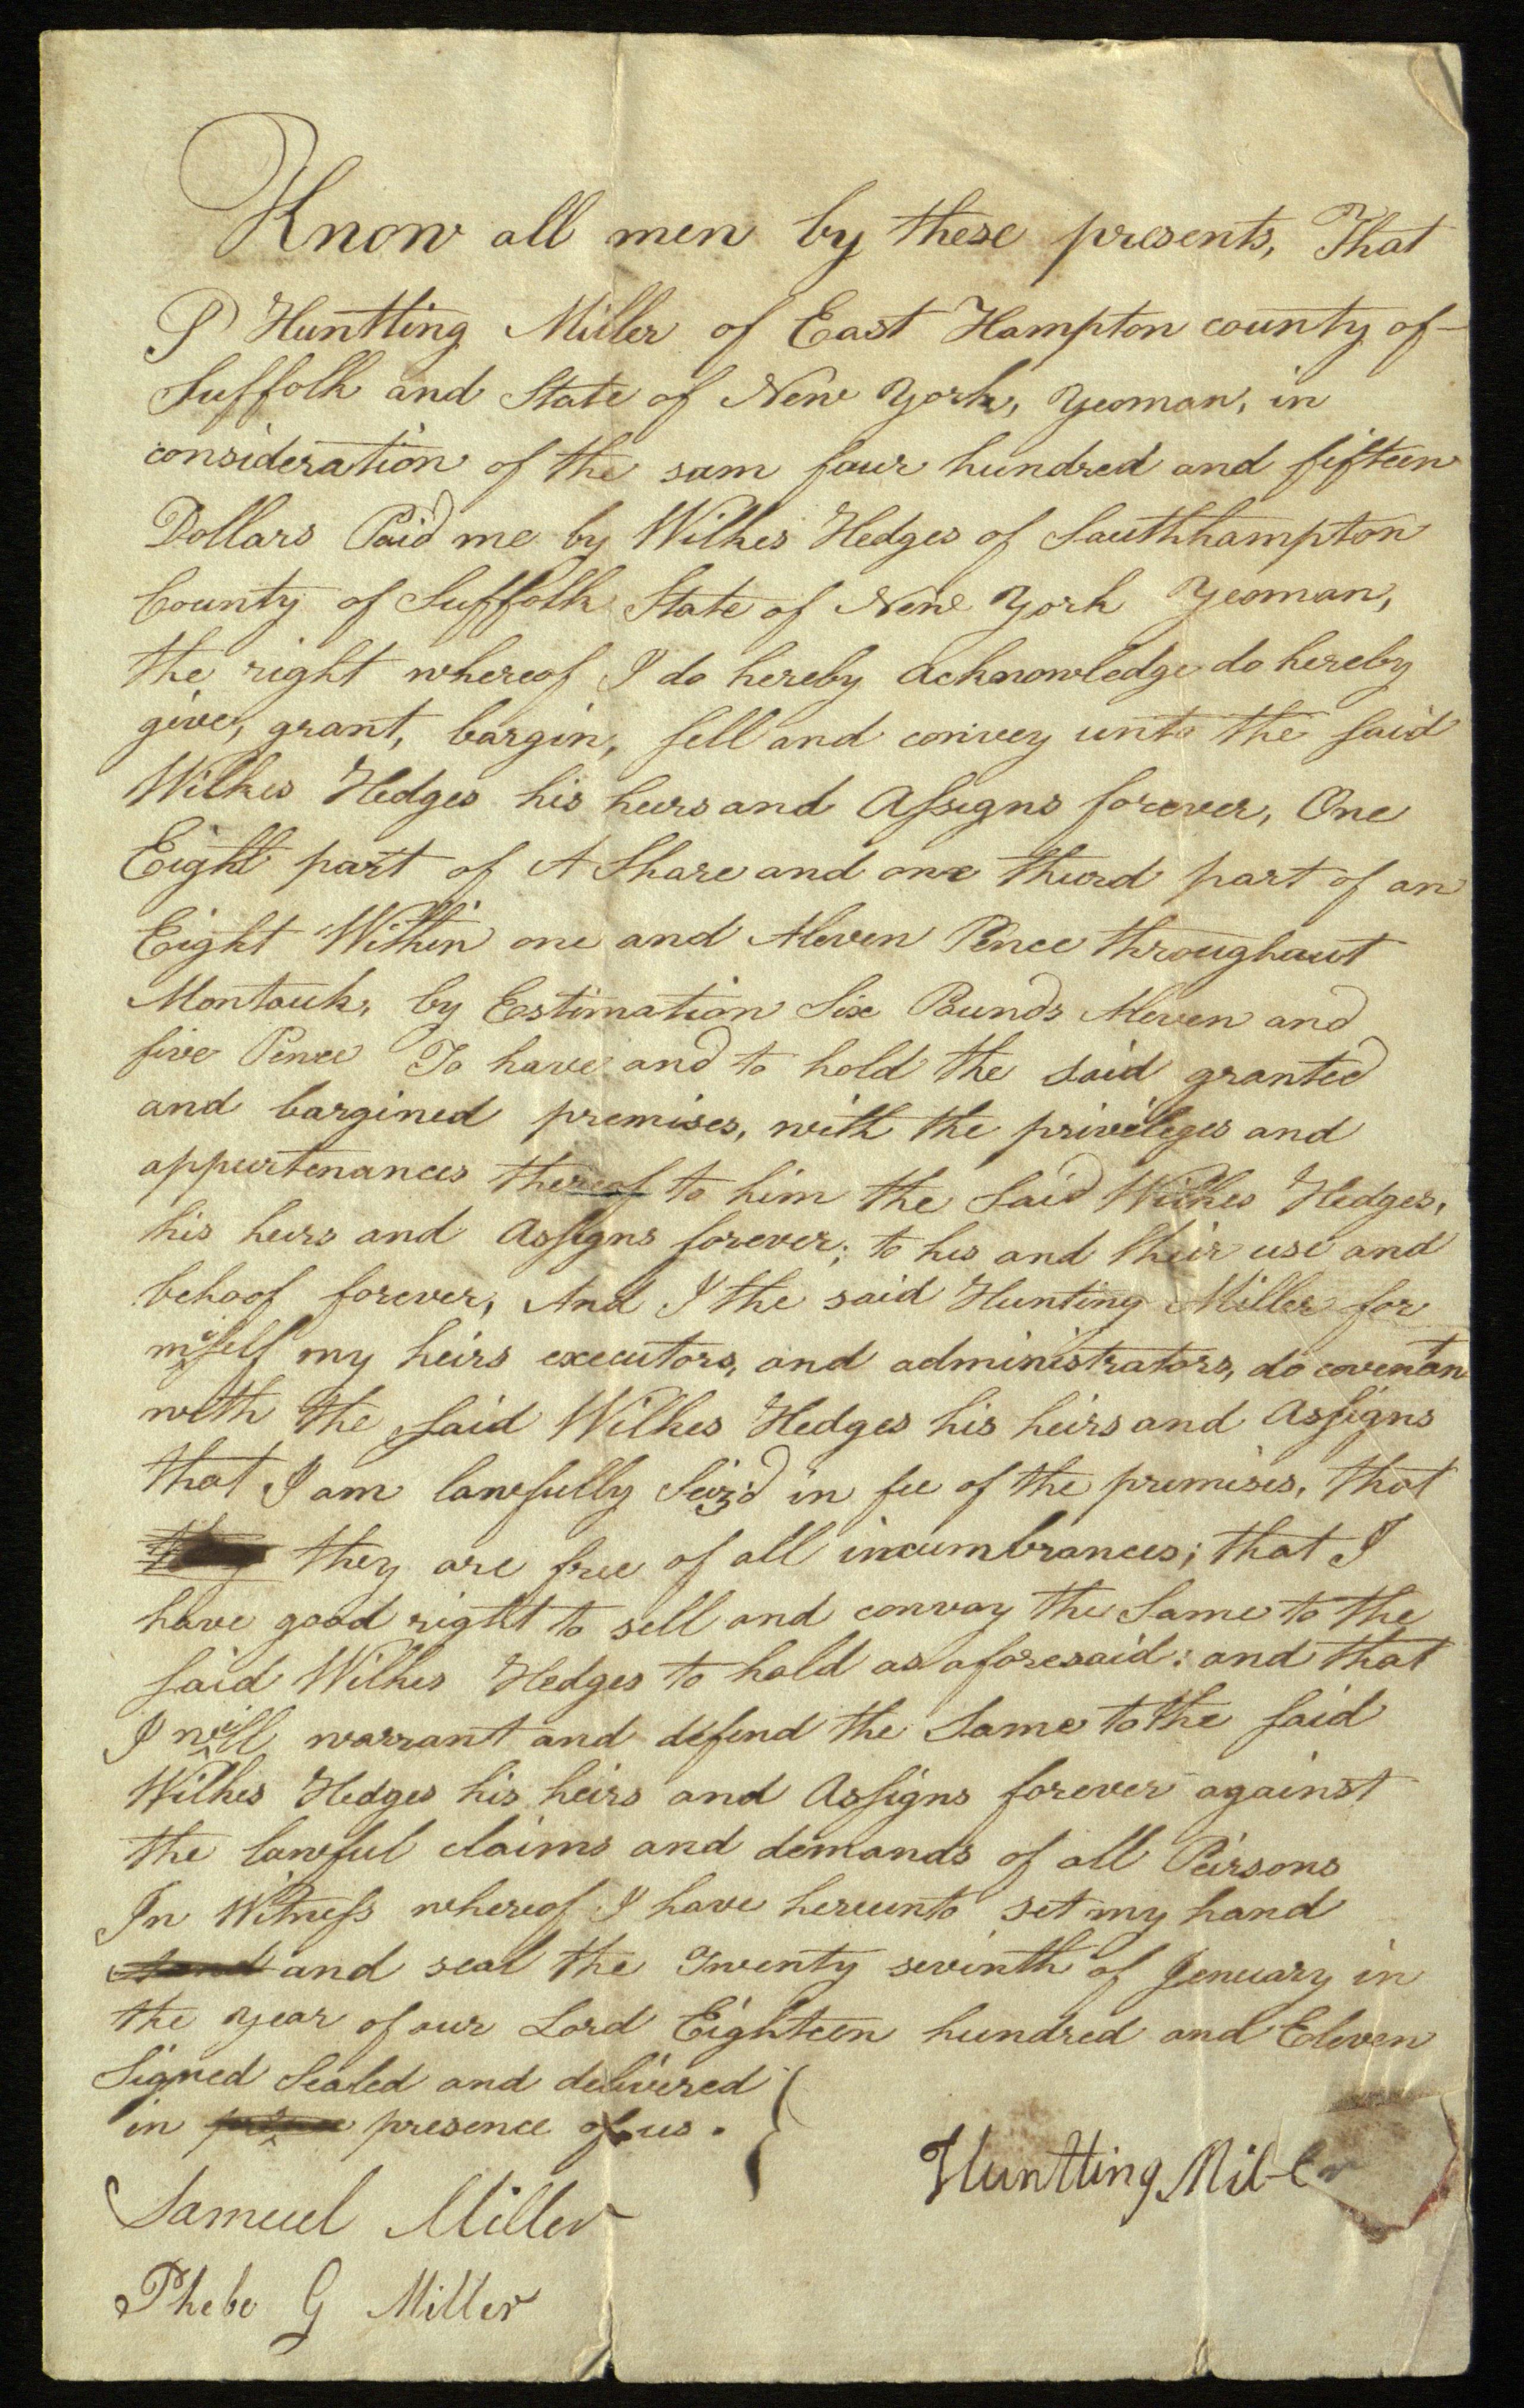 Know all men by these presents, That
I Huntting Miller of East Hampton county of
Suffolk and State of New York, Yeoman, in
consideration of the sum four hundred and fifteen
Dollars Paid me by Wilkes Hedges of Southhampton
County of Suffolk State of New York Yeoman,
the right whereof I do hereby acknowledge do hereby
give, grant, bargin, sell and convey unto the said
Wilkes Hedges his heirs and Assigns forever, One
Eight part of A Share and one third part of an
Eight Within one and Aleven Pence throughout
Montauk, by Estimation Six Pounds Aleven and
five Pence To have and to hold the said granted
and bargined premises, with the privileges and
appurtenances thereof to him the Said Wilkes Hedges,
his heirs and Assigns forever; to his and their use and
behoof forever, And I the said Hunting Miller for
myself my heirs executors, and administrators, do covenan
with the said Wilkes Hedges his heirs and Assigns
that I am lawfully Seiz'd in fee of the premises, that
they are free of all incumbrances; that I
have good right to sell and convay the Same to the
said Wilkes Hedges to hold as aforesaid: and that
I will warrant and defend the Same to the said
Wilkes Hedges his heirs and Assigns forever against
the lawful claims and demands of all Peirsons
In Witness whereof I have hereunto set my hand
and seal the Twenty sevinth of Jenuary in
the year of our Lord Eighteen hundred and Eleven
Signed Sealed and delivered
in presence of us.
Huntting Miller
Samuel Miller
Phebe G Miller